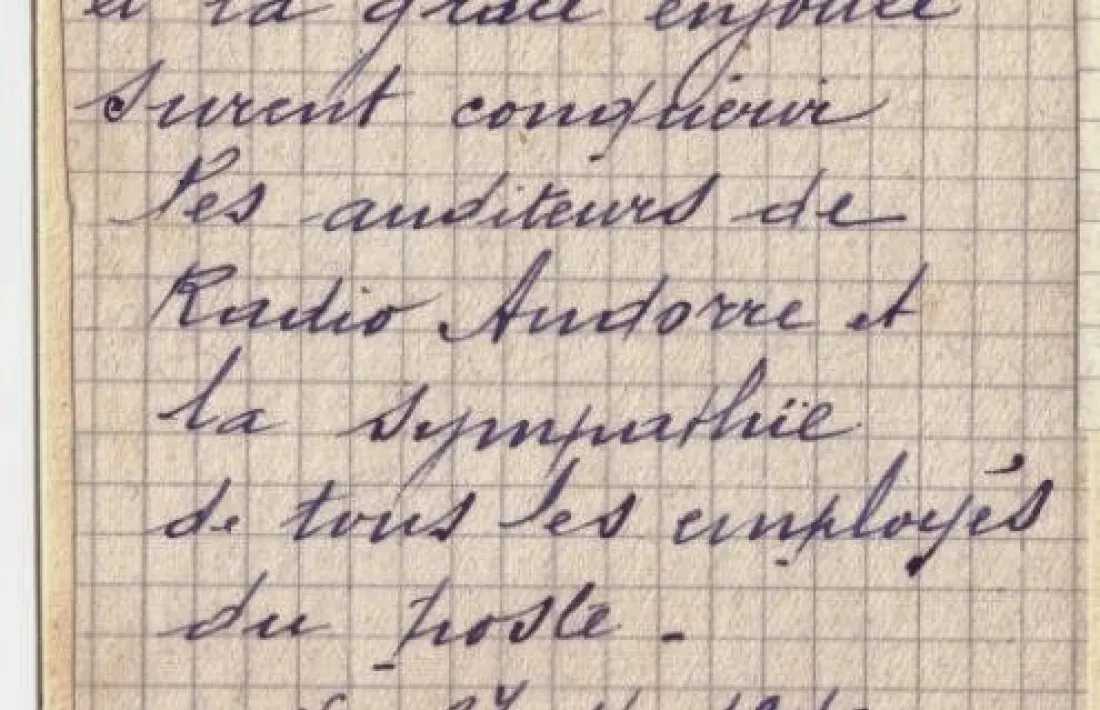 et la grâce enjouée
surent conquérir
les auditeurs de
Radio Andorre et
la sympathïe
de tous les employés
du poste -